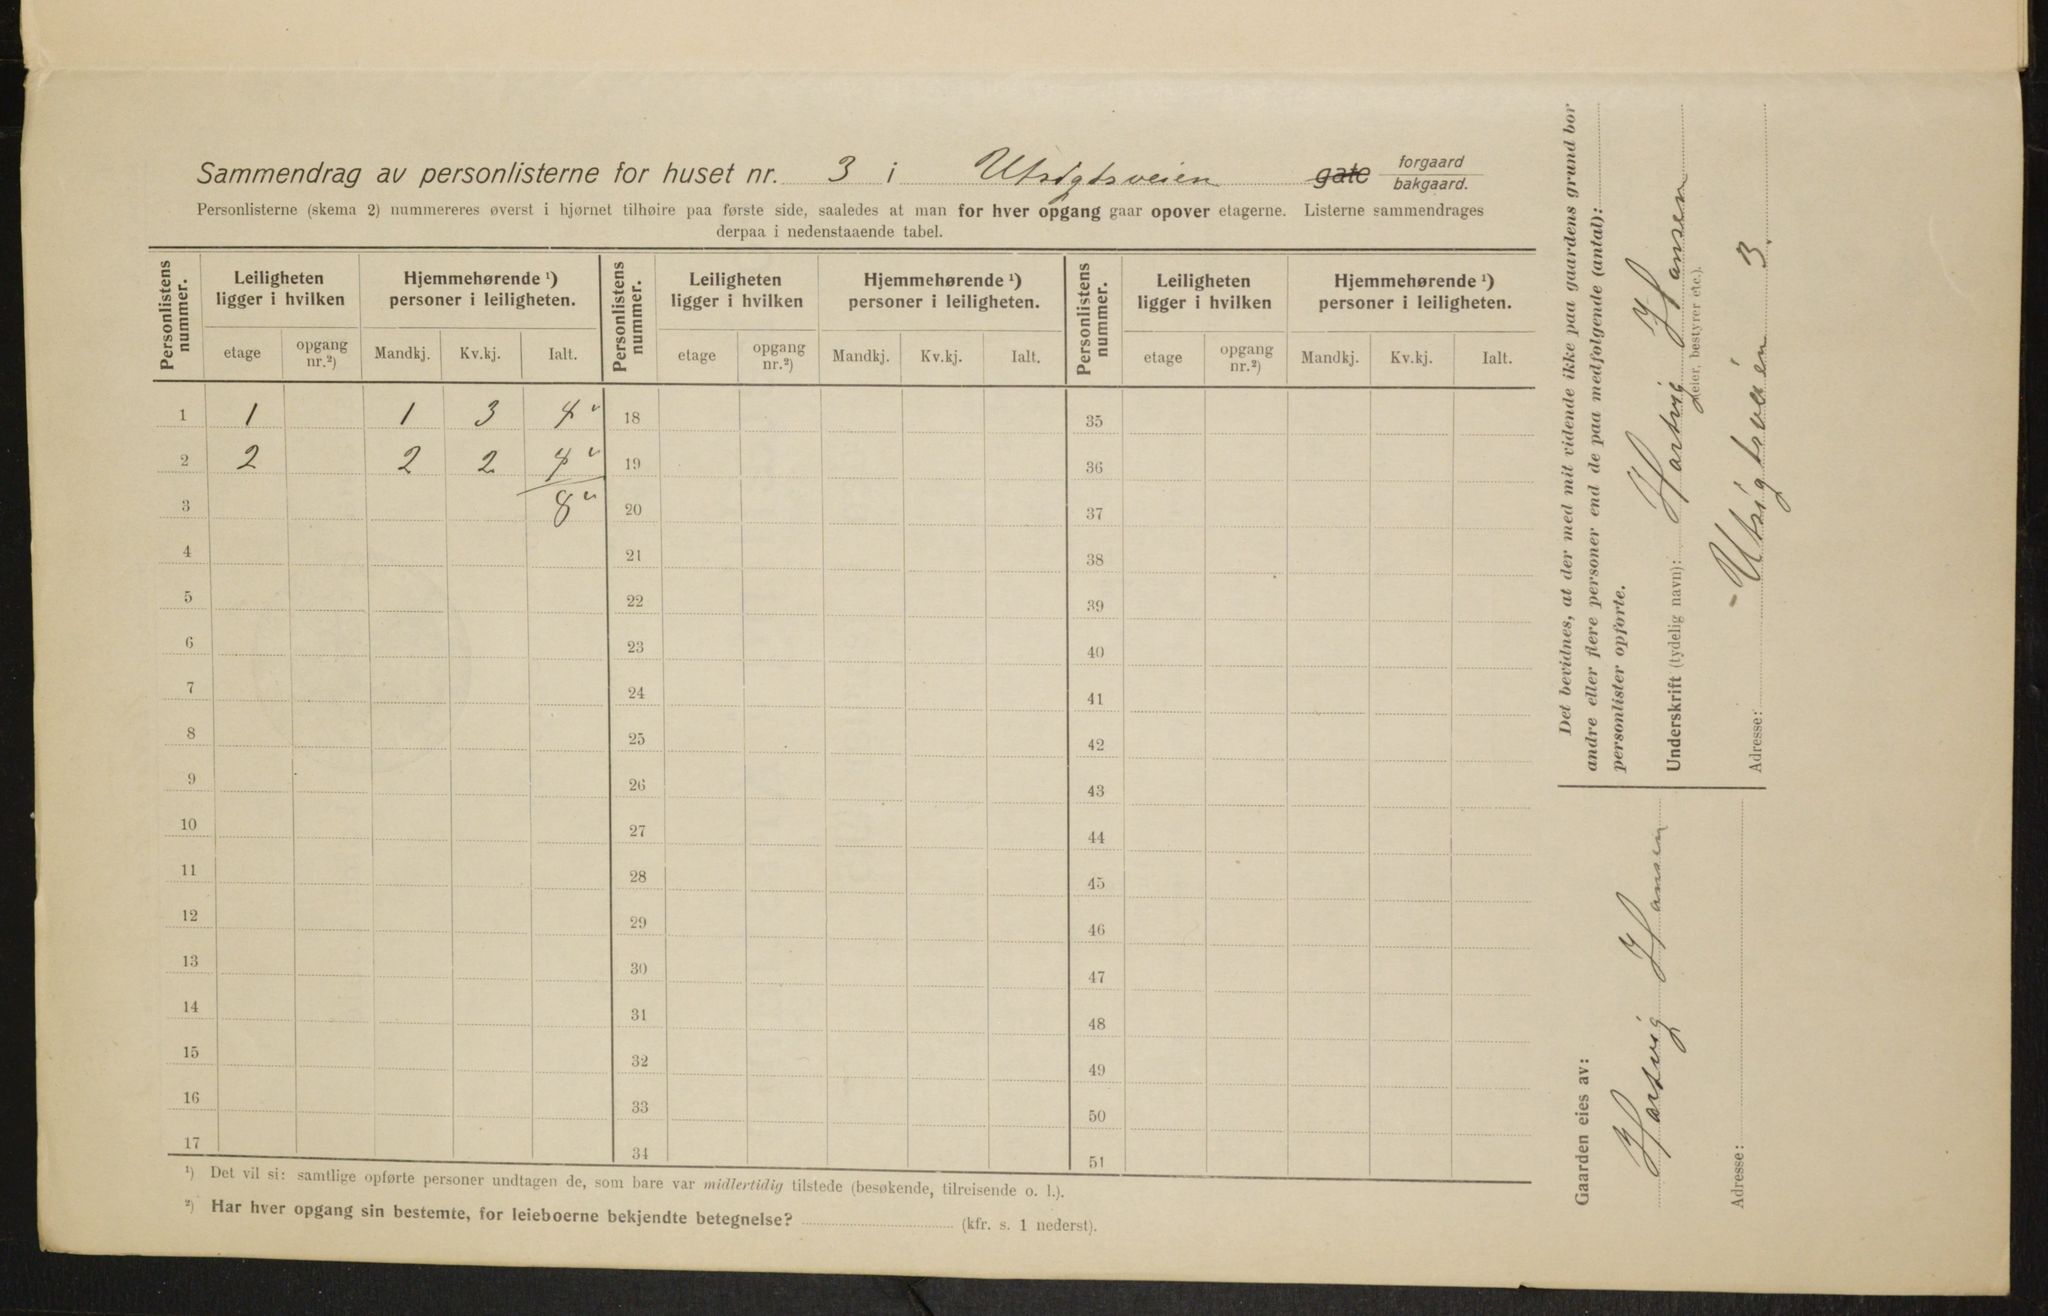 Sammendrag av personlisterne for huset nr. 3 i Utsigtsveien gate forgaard bakgaard.
Personlisterne (skema 2) nummereres øverst i hjørnet tilhøire paa første side, saaledes at man for hver opgang gaar opover etagerne. Listerne sammendrages
derpaa i nedenstaaende tabel.
Personlistens nummer. Leiligheten ligger i hvilken Hjemmehørende ¹) personer i leiligheten. Personlistens nummer. Leiligheten ligger i hvilken Hjemmehørende ¹) personer i leiligheten. Personlistens nummer. Leiligheten ligger i hvilken Hjemmehørende ¹) personer i leiligheten.
etage opgang nr.²) Mandkj. Kv.kj. Ialt. etage opgang nr.²) Mandkj. Kv.kj. Ialt. etage opgang nr.²) Mandkj. Kv.kj. Ialt.
1 1 1 3 4 18 35
2 2 2 2 4 19 36
3 8 20 37
4 21 38
5 22 39
6 23 40
7 24 41
8 25 42
9 26 43
10 27 44
11 28 45
12 29 46
13 30 47
14 31 48
15 32 49
16 33 50
17 34 51
¹) Det vil si: samtlige opførte personer undtagen de, som bare var midlertidig tilstede (besøkende, tilreisende o. l.).
²) Har hver opgang sin bestemte, for leieboerne bekjendte betegnelse? (kfr. s. 1 nederst).
Det bevidnes, at der med mit vidende ikke paa gaardens grund bor
andre eller flere personer end de paa medfølgende (antal):
personlister opførte.
Underskrift (tydelig navn): Hartvig Hansen
(eier, bestyrer etc.).
Adresse: Utsigtsveien 3.
Gaarden eies av:
Hartvig Hansen
Adresse: